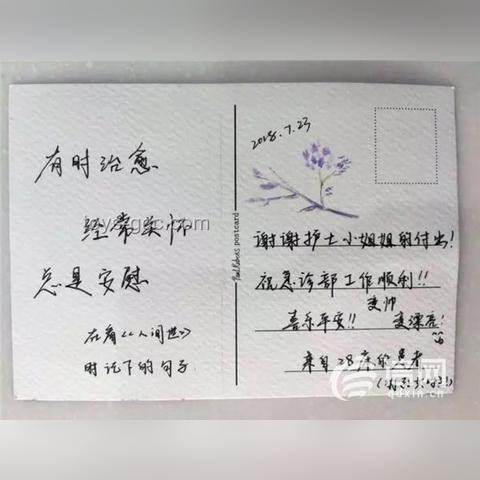 有时治愈
经常关怀
总是安慰
在看《人间世》
时记下的句子
postcard
2018.7.23
谢谢护士小姐姐的付出!
祝急诊部工作顺利!!
变帅
喜乐平安!! 变漂亮!
来自28床的患者
信网
qdxin.cn